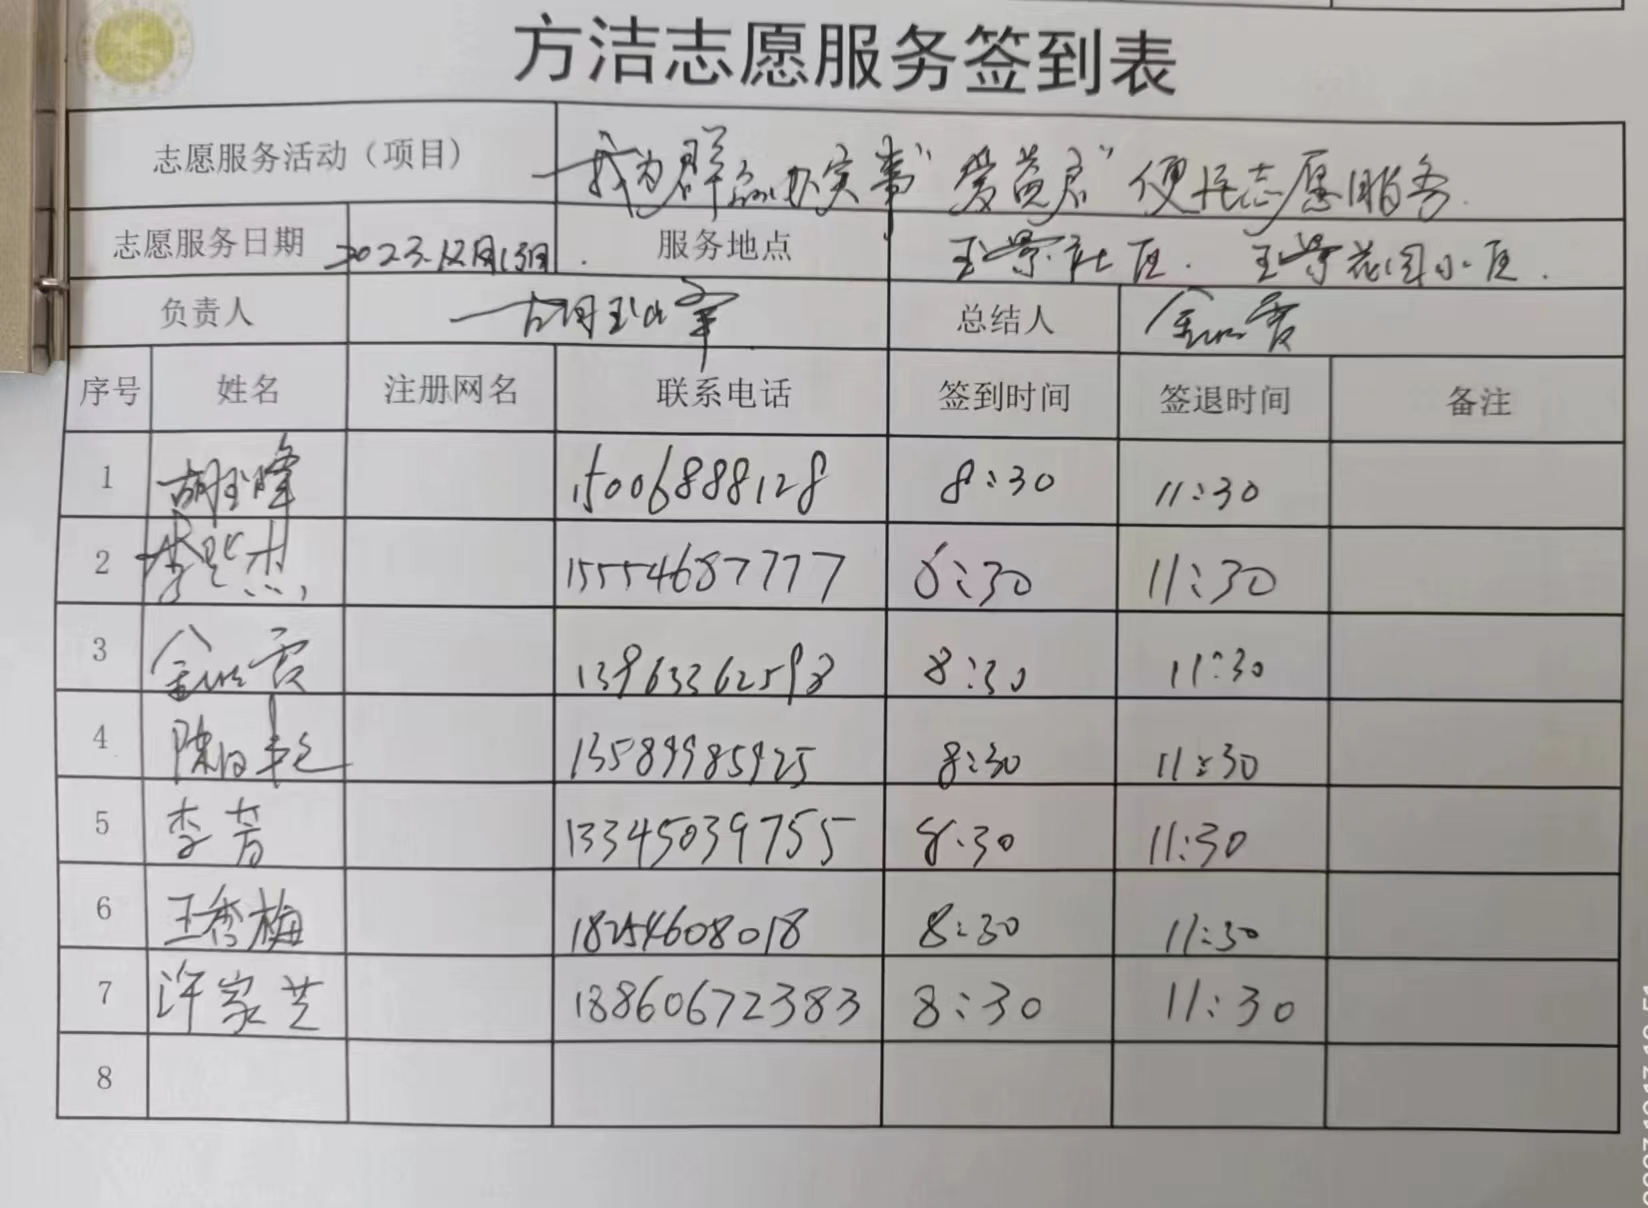 方洁志愿服务签到表
志愿服务活动（项目） 我为群众办实事"爱益启"便民志愿服务.
志愿服务日期 2023.12月13日. 服务地点 玉景社区. 玉景花园小区.
负责人 胡玉峰 总结人 金 霞
序号 姓名 注册网名 联系电话 签到时间 签退时间 备注
1 胡玉峰 15006888128 8:30 11:30
2 李 杰 15554687777 8:30 11:30
3 金 霞 13963362593 8:30 11:30
4 陈 13589985925 8:30 11:30
5 李芳 13345039755 8:30 11:30
6 王秀梅 18254608018 8:30 11:30
7 许家芝 18860672383 8:30 11:30
8